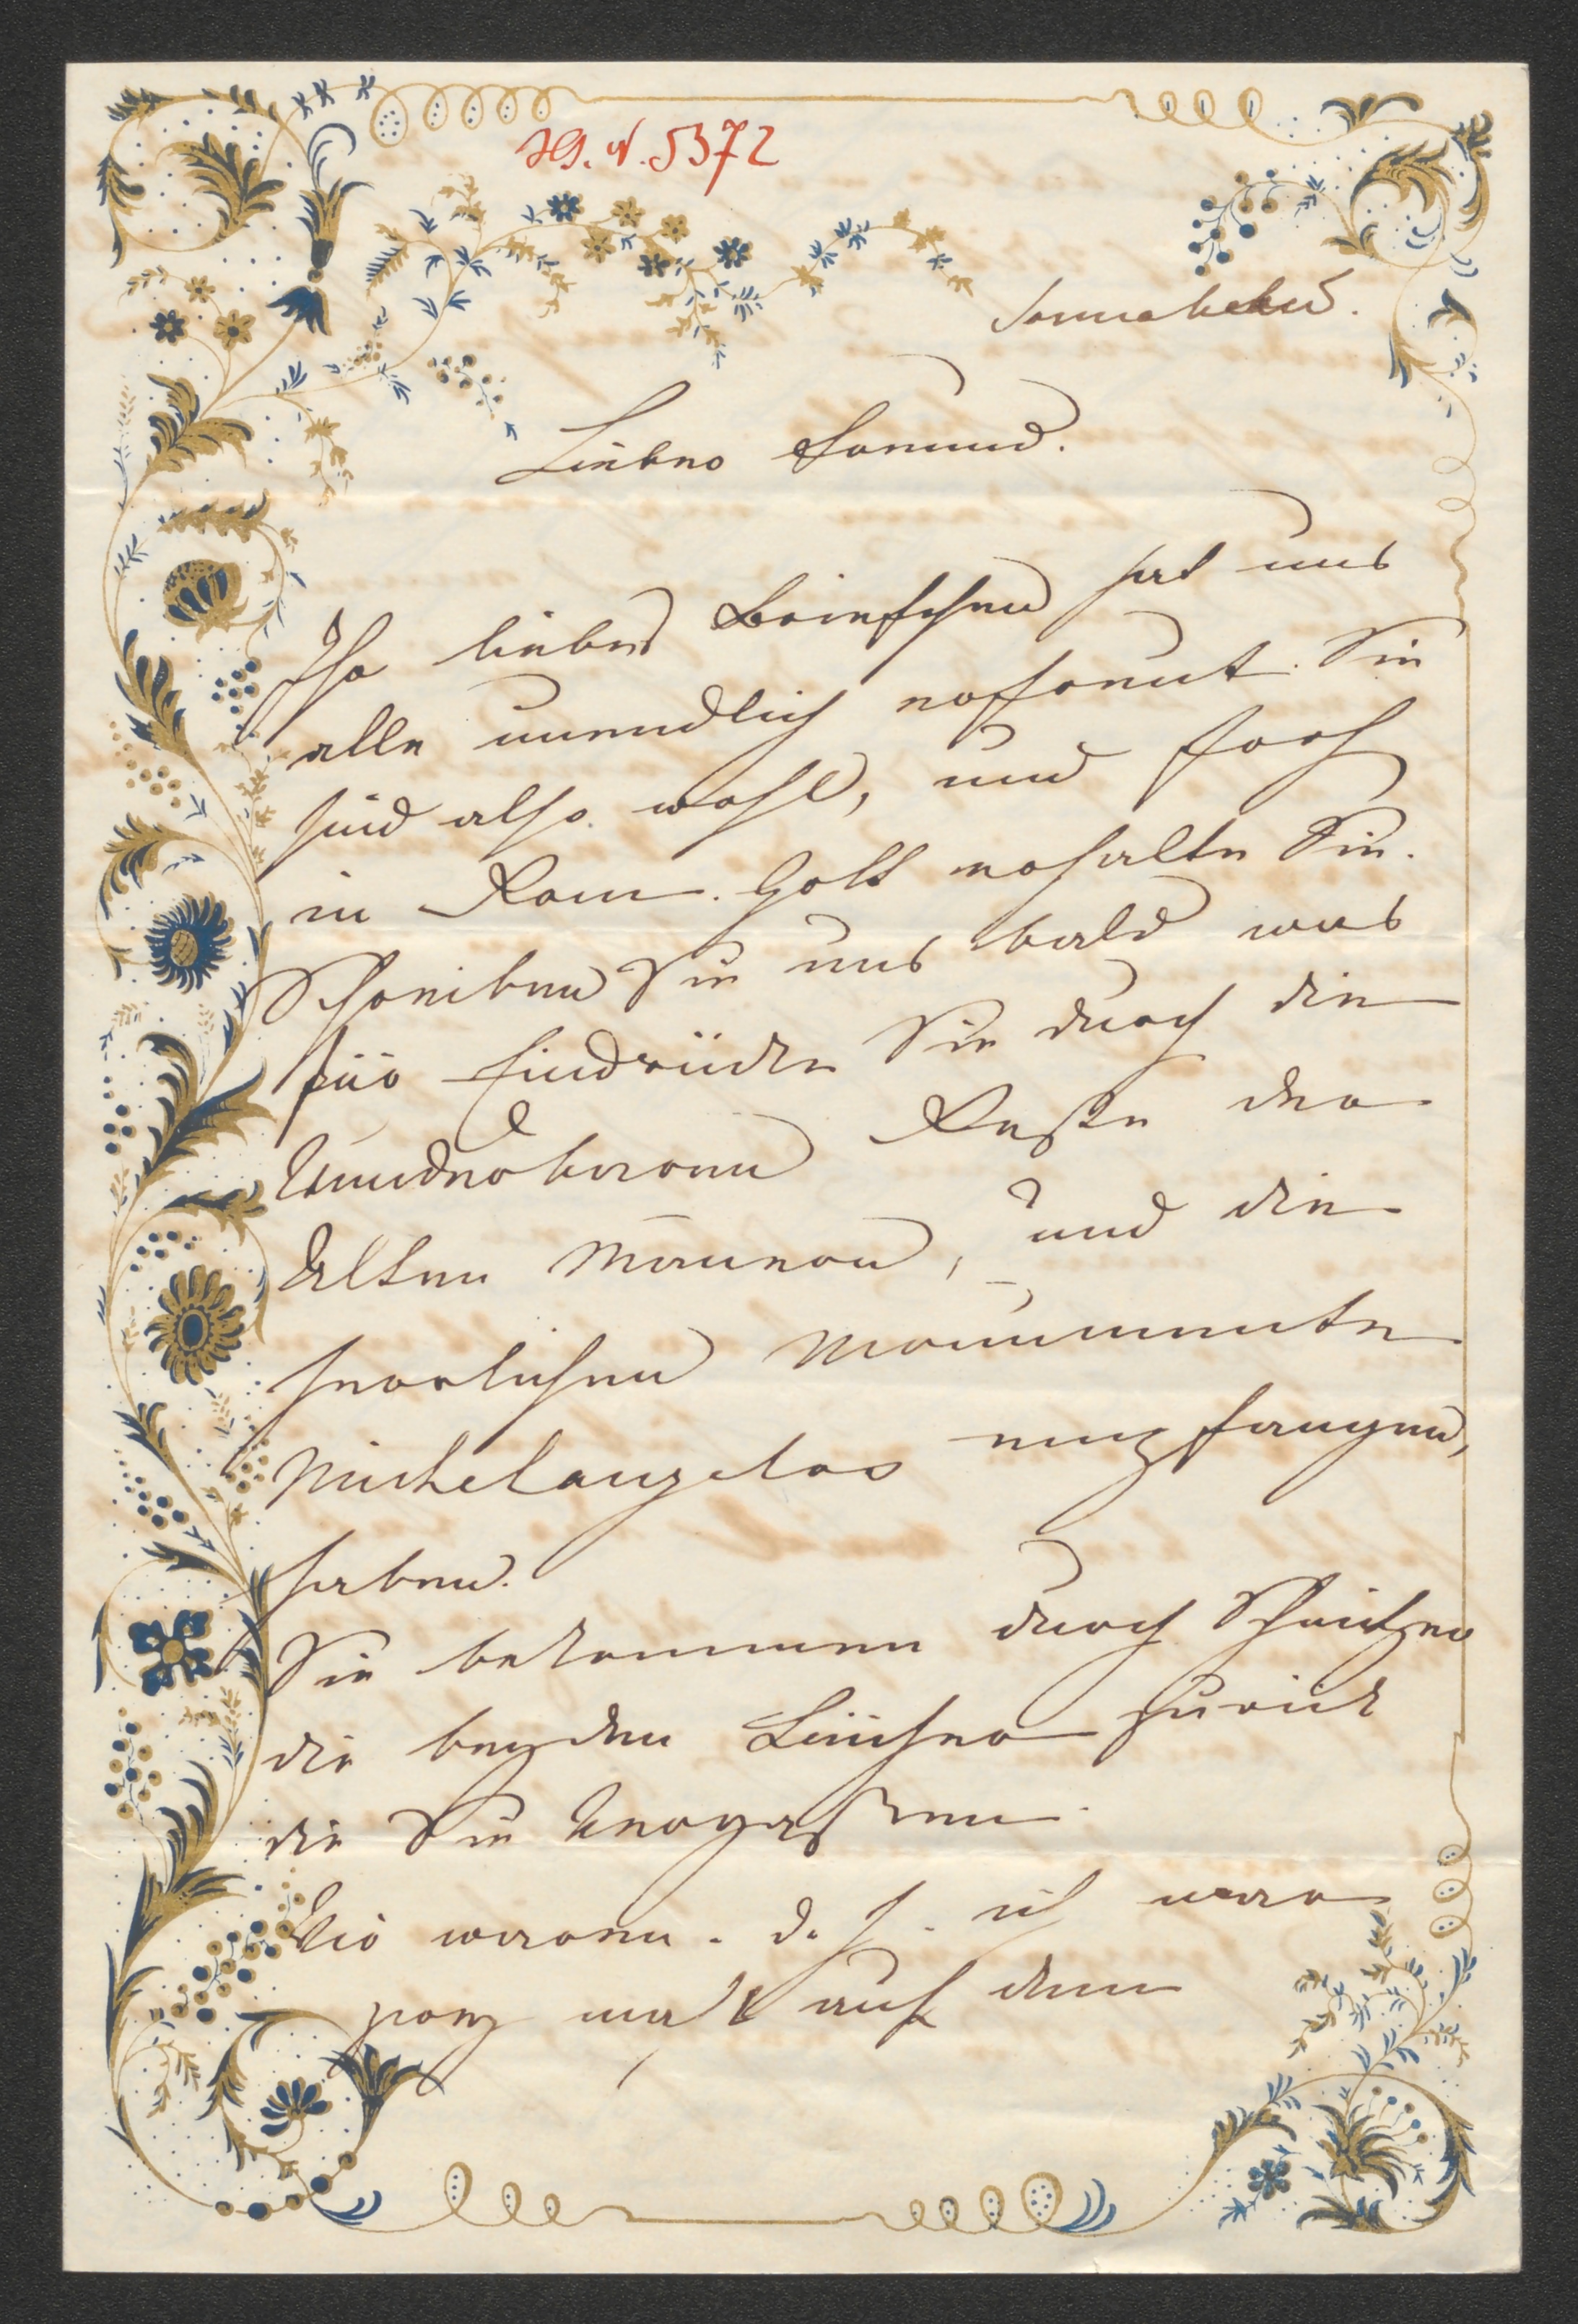 H. N. 5372
Sonnabend.
Lieber Freund.
Ihr liebes Briefchen hat uns
alle unendlich erfreut. Sie
sind also wohl, und froh
in Rom. Gott erhalte Sie.
Schreiben Sie uns bald was
für Eindrücke Sie durch die
Wunderbaren Reste der
Alten Mauern, und die
herrlichen Monumente
Michelangelos empfangen,
haben.
Sie bekommen durch
die beyden Bücher zurück
die Sie vergaßen.
Wir waren. d. h. ich war
ganz matt auf dem